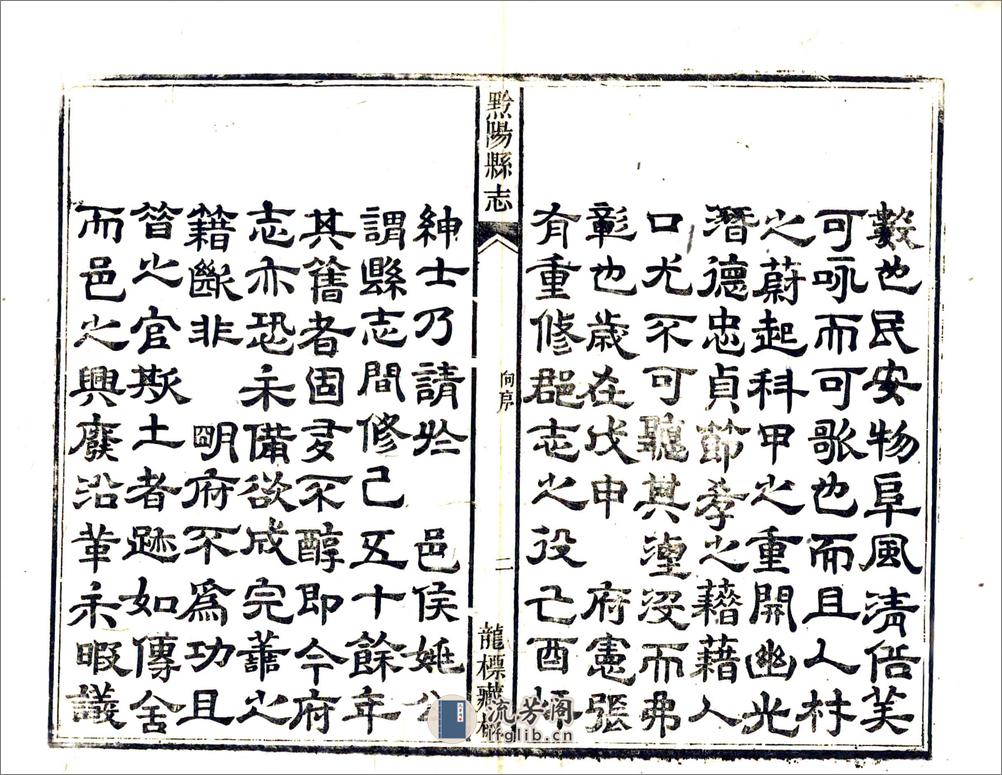 數也民安物阜風清俗美
可咏而可歌也而且人材
之蔚起科甲之重開幽光
潛德忠貞節孝之藉藉人
口尤不可聽其湮沒而弗
彰也歲在戊申 府憲張
有重修郡志之役己酉
黔陽縣志
向序
二
龍標藏板
紳士乃請於 邑侯姚公
謂縣志間修已五十餘年
其舊者固多不醇即今府
志亦恐未備欲成完善之
籍斷非 明府不爲功且
昔之官斯土者跡如傳舍
而邑之興廢沿革未暇議
流芳阁
glib.cn